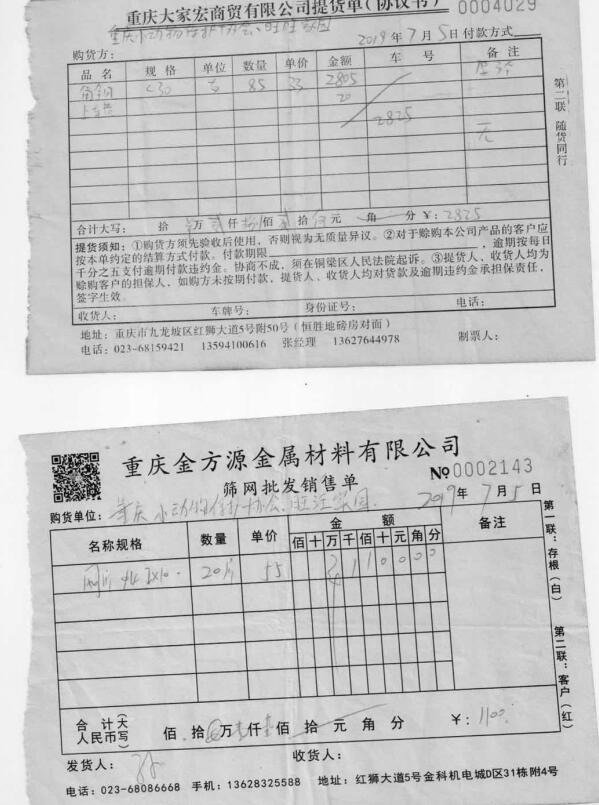 重庆大家宏商贸有限公司提货单(协议书) 0004029
重庆小动物保护协会、旺旺家园
购货方: 2019年7月5日 付款方式
品名 规格 单位 数量 单价 金额 车号 备注
角钢 <30 支 85 33 2805
20
2825
元
第二联 随货同行
合计大写: 拾 万贰仟捌佰贰拾伍元 角 分 ¥:2825
提货须知:①购货方须先验收后使用,否则视为无质量异议。②对于赊购本公司产品的客户应
按本单约定的结算方式付款。付款期限 ,逾期按每日
千分之五支付逾期付款违约金。协商不成,须在铜梁区人民法院起诉。③提货人、收货人均为
赊购客户的担保人,如购方未按期付款,提货人、收货人均对货款及逾期违约金承担保责任,
签字生效。
收货人: 车牌号: 身份证号: 电话:
地址:重庆市九龙坡区红狮大道5号附50号(恒胜地磅房对面)
电话:023-68159421 13594100616 张经理 13627644978 制票人:
重庆金方源金属材料有限公司
筛网批发销售单 № 0002143
购货单位:重庆小动物保护协会、旺旺家园 2019年7月5日
名称规格 数量 单价 金额 备注
佰 十 万 千 佰 十 元 角 分
网片 20片 55 1 1 0 0 0 0
第一联:存根(白)
第二联:客户(红)
合计(大
人民币写) 佰 拾 万壹仟壹佰 拾 元 角 分 ¥:1100
发货人: 收货人:
电话:023-68086668 手机:13628325588 地址:红狮大道5号金科机电城D区31栋附4号